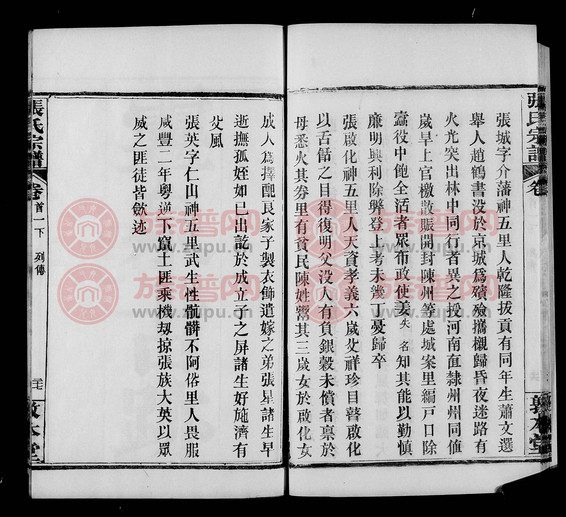 張氏宗譜 卷
敦本堂
張城字介藩神五里人乾隆拔貢有同年生蕭文選
舉人趙鶴書沒於京城為殯殮攜櫬歸昏夜迷路有
火光突出林中同行者異之授河南直隸州州同
歲旱上官檄散賑開封陳州等處城案里編戶口除
蠹役中飽全活者眾布政使姜失名知其能以勤慎
廉明興利除弊登上考未幾丁憂歸卒
張啟化神五里人天資孝義六歲父祥珍目瞽啟化
以舌舐之目得復明父沒人有負銀穀未償者稟於
母悉火其券里有貧民陳姓鬻其三歲女於啟化女
成人為擇配良家子製衣飾遣嫁之弟張星諸生早
逝撫孤姪如己出訖於成立子之屏諸生好施濟有
父風
張英字仁山神五里武生性骯髒不阿俗里人畏服
咸豐二年粵逆下竄土匪乘機刼掠張族大英以眾
威之匪徒皆斂迹
張氏宗譜 卷首一下 列傳
敦本堂
族譜网
www.zupu.cn